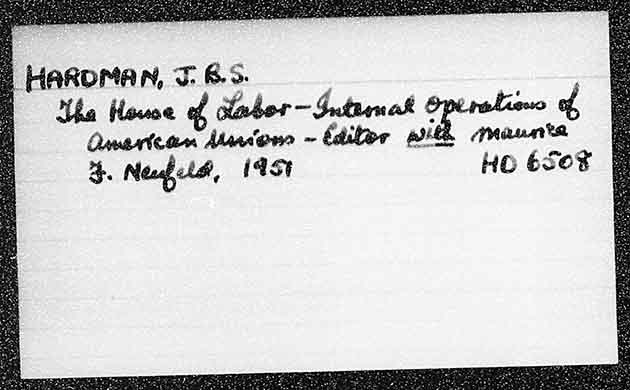 HARDMAN, J. B. S.
The House of Labor - Internal Operations of
American Unions - Editor with Maurice
F. Neufeld, 1951 HD 6508